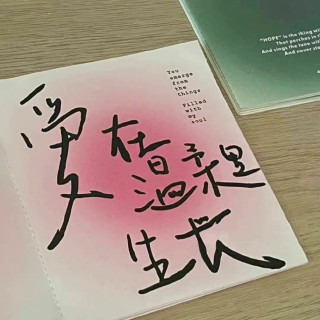 You
emerge
from
the
things
Filled
with
my
soul
爱
在
温柔里
生长
"HOPE" is the thing wi
That perches in
And sings the tune wi
And never